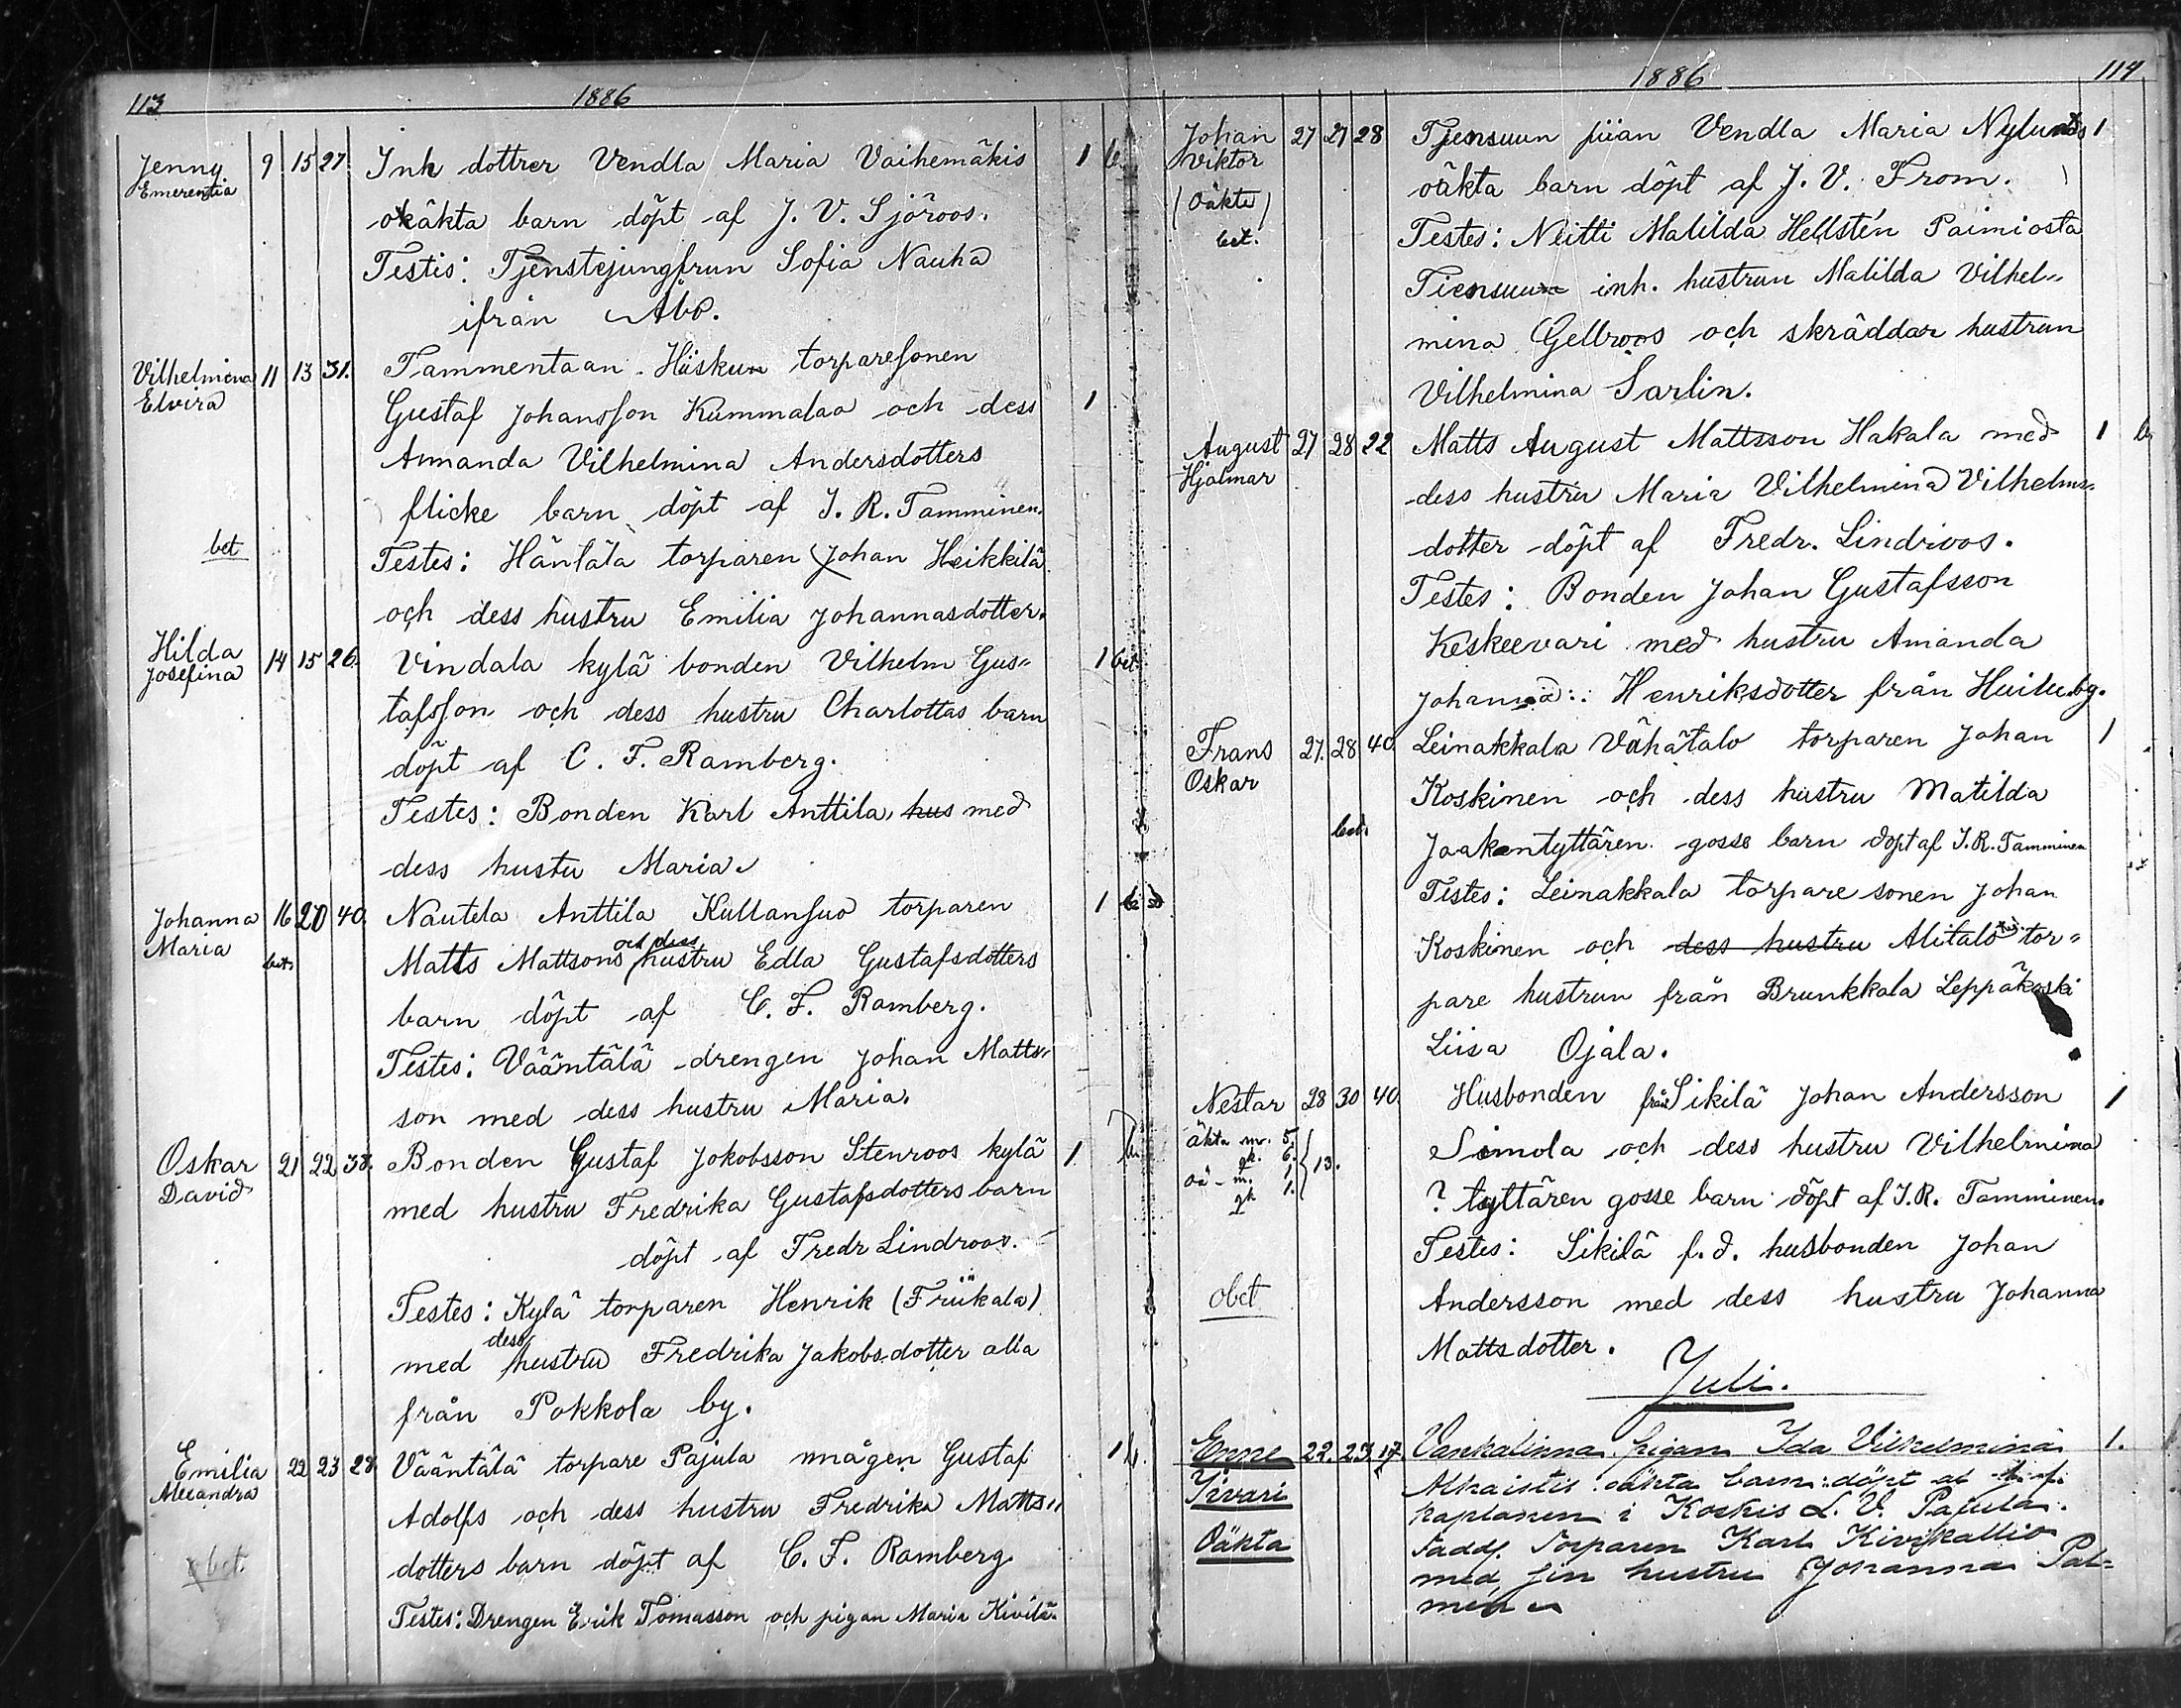 113 1886
Jenny 9 15 27. Inh dottrer Vendla Maria Vaihemäkis 1 b.
Emerentia
oäkta barn döpt af J. V. Sjöroos.
Testis: Tjenstejungfrun Sofia Nauha
ifrån Åbo.
Vilhelmina 11 13 31. Tammentaan Hiiskun torparesonen
Elvira Gustaf Johansson Kummalaa och dess 1
Amanda Vilhelmina Andersdotters
flicke barn döpt af J. R. Tamminen.
bet Testes: Häntälä torparen Johan Heikkilä
och dess hustru Emilia Johannasdotter.
Hilda 14 15 26. Vindala kylä bonden Vilhelm Gus= 1 bet
Josefina
tafsson och dess hustru Charlottas barn
döpt af C. F. Ramberg.
Testes: Bonden Karl Anttila, hus med
dess hustu Maria
Johanna 16 20 40. Nautela Anttila Kullansuo torparen 1
Maria bet. Matts Mattsons och dess hustru Edla Gustafsdotters
barn döpt af C. F. Ramberg.
Testes: Vääntälä drengen Johan Matts=
son med dess hustru Maria.
Oskar 21 22 38. Bonden Gustaf Jakobsson Stenroos kylä 1.
David med hustru Fredrika Gustafsdotters barn
döpt af Fredr Lindroos.
Testes: Kylä torparen Henrik (Friikala)
med dess hustru Fredrika Jakobsdotter alla
från Pokkola by.
Emilia 22 23 28 Vääntälä torpare Pajula mågen Gustaf 1 b.
Alexandra
Adolfs och dess hustru Fredrika Matts=
bet. dotters barn döpt af C. F. Ramberg
Testes: Drengen Erik Tomasson och pigan Maria Kivilä
1886 114
Johan 27 27 28 Tjensuun piian Vendla Maria Nylunds 1
Viktor
(Oäkta) oäkta barn döpt af J. V. From.
bet. Testes: Neitti Matilda Hellstén Paimiosta
Tiensuun inh. hustrun Matilda Vilhel=
mina Gellroos och skräddar hustrun
Vilhelmina Sarlin.
August 27 28 22 Matts August Mattsson Hakala med 1 b
Hjalmar
dess hustru Maria Vilhelmina Vilhelms=
dotter döpt af Fredr. Lindroos.
Testes: Bonden Johan Gustafsson
Keskeevari med hustru Amanda
Johanna Henriksdotter från Huilu by.
Frans 27. 28 40. Leinakkala Vähätalo torparen Johan 1
Oskar Koskinen och dess hustru Matilda
bet. Jaakontyttären gosse barn döpt af J. R. Tamminen
Testes: Leinakkala torpare sonen Johan
Koskinen och dess hustru Alitalo tor=
pare hustrun från Brunkkala Leppäkoski
Liisa Ojala.
Nestar 28 30 40. Husbonden från Sikilä Johan Andersson 1
äkta m. 5.
gk. 6. 13. Simola och dess hustru Vilhelmina
oä - m. 1
gk 1. ? tyttären gosse barn döpt af J. R. Tamminen.
Testes: Sikilä f. d. husbonden Johan
obet Andersson med dess hustru Johanna
Mattsdotter.
Juli.
Enne 22. 23. 17. Vanhalinna pigan Ida Vilhelmina 1.
Iivari oäkta barn: döpt af
kaplanen i Koskis L. V. Patula.
Oäkta Fadd. Torparen Karl Kivikallio
med sin hustru Johanna Pal=
men